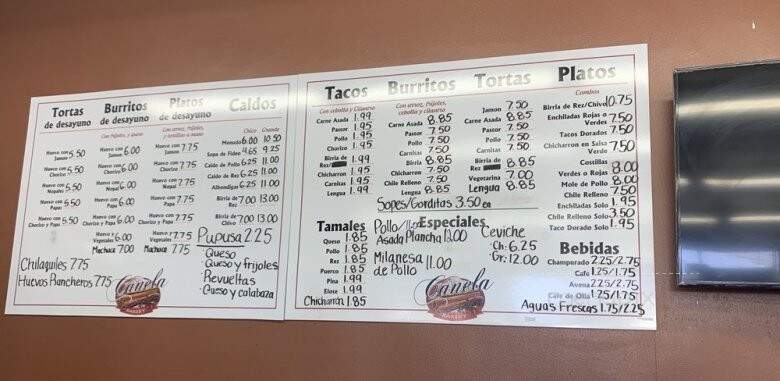 Tortas
de desayuno
Huevo con
Jamon 5.50
Huevo con
Chorizo 5.50
Huevo con
Nopales 5.50
Huevo con
Papa 5.50
Huevo con
Chorizo y Papa 5.50
Chilaquiles 7.75
Huevos Rancheros 7.75
Burritos
de desayuno
Con frijoles, y queso
Huevo con
Jamon 6.00
Huevo con
Chorizo 6.00
Huevo con
Nopal 6.00
Huevo con
Papa 6.00
Huevo con
Chorizo y Papa 6.00
Huevo y
Vegetales 6.00
Machaca 7.00
Platos
de desayuno
Con arroz, frijoles,
y tortillas a mano
Huevo con
Jamon 7.75
Huevo con
Chorizo 7.75
Huevo con
Nopal 7.75
Huevo con
Papa 7.75
Huevo con
Chorizo y Papa 7.75
Huevo y
Vegetales 7.75
Machaca 7.75
Caldos
Chico Grande
Menudo 6.00 10.50
Sopa de Fideo 4.65 9.25
Caldo de Pollo 6.25 11.00
Caldo de Res 6.25 11.00
Albondigas 6.25 11.00
Birria de
Res 7.00 13.00
Birria de
Chivo 7.00 13.00
Pupusa 2.25
· Queso
· Queso y frijoles
· Revueltas
· Queso y calabaza
Canela
BAKERY
Tacos
Con cebolla y cilantro
Carne Asada 1.99
Pastor 1.95
Pollo 1.95
Chorizo 1.95
Birria de
Res/ 1.99
Chicharron 1.95
Carnitas 1.95
Lengua 1.99
Burritos
Con arroz, frijoles,
cebolla y cilantro
Carne Asada 8.85
Pastor 7.50
Pollo 7.50
Carnitas 7.50
Birria 8.85
Chicharron 7.50
Chile Relleno 7.50
Lengua 8.85
Tortas
Jamon 7.50
Carne Asada 8.85
Pastor 7.50
Pollo 7.50
Carnitas 7.50
Birria de
Res 8.85
Vegetariana 7.00
Lengua 8.85
Sopes/Gorditas 3.50 ea
Platos
Combos
Birria de Rez/Chivo 10.75
Enchiladas Rojas o
Verdes 7.50
Tacos Dorados 7.50
Chicharron en Salsa
Verde 7.50
Costillas
Verdes o Rojas 8.00
Mole de Pollo 8.00
Chile Relleno 7.50
Enchiladas Solo 1.95
Chile Relleno Solo 3.50
Taco Dorado Solo 1.95
Tamales
Queso 1.85
Pollo 1.85
Rez 1.85
Puerco 1.85
Pina 1.99
Elote 1.99
Chicharrón 1.85
Especiales
Pollo/
Asada Plancha 13.00
Milanesa
de Pollo 11.00
Ceviche
· Ch: 6.25
· Gr: 12.00
Canela
BAKERY
Bebidas
Champurado 2.25/2.75
Cafe 1.25/1.75
Avena 2.25/2.75
Cafe de Olla 1.25/1.75
Aguas Frescas 1.75/2.25